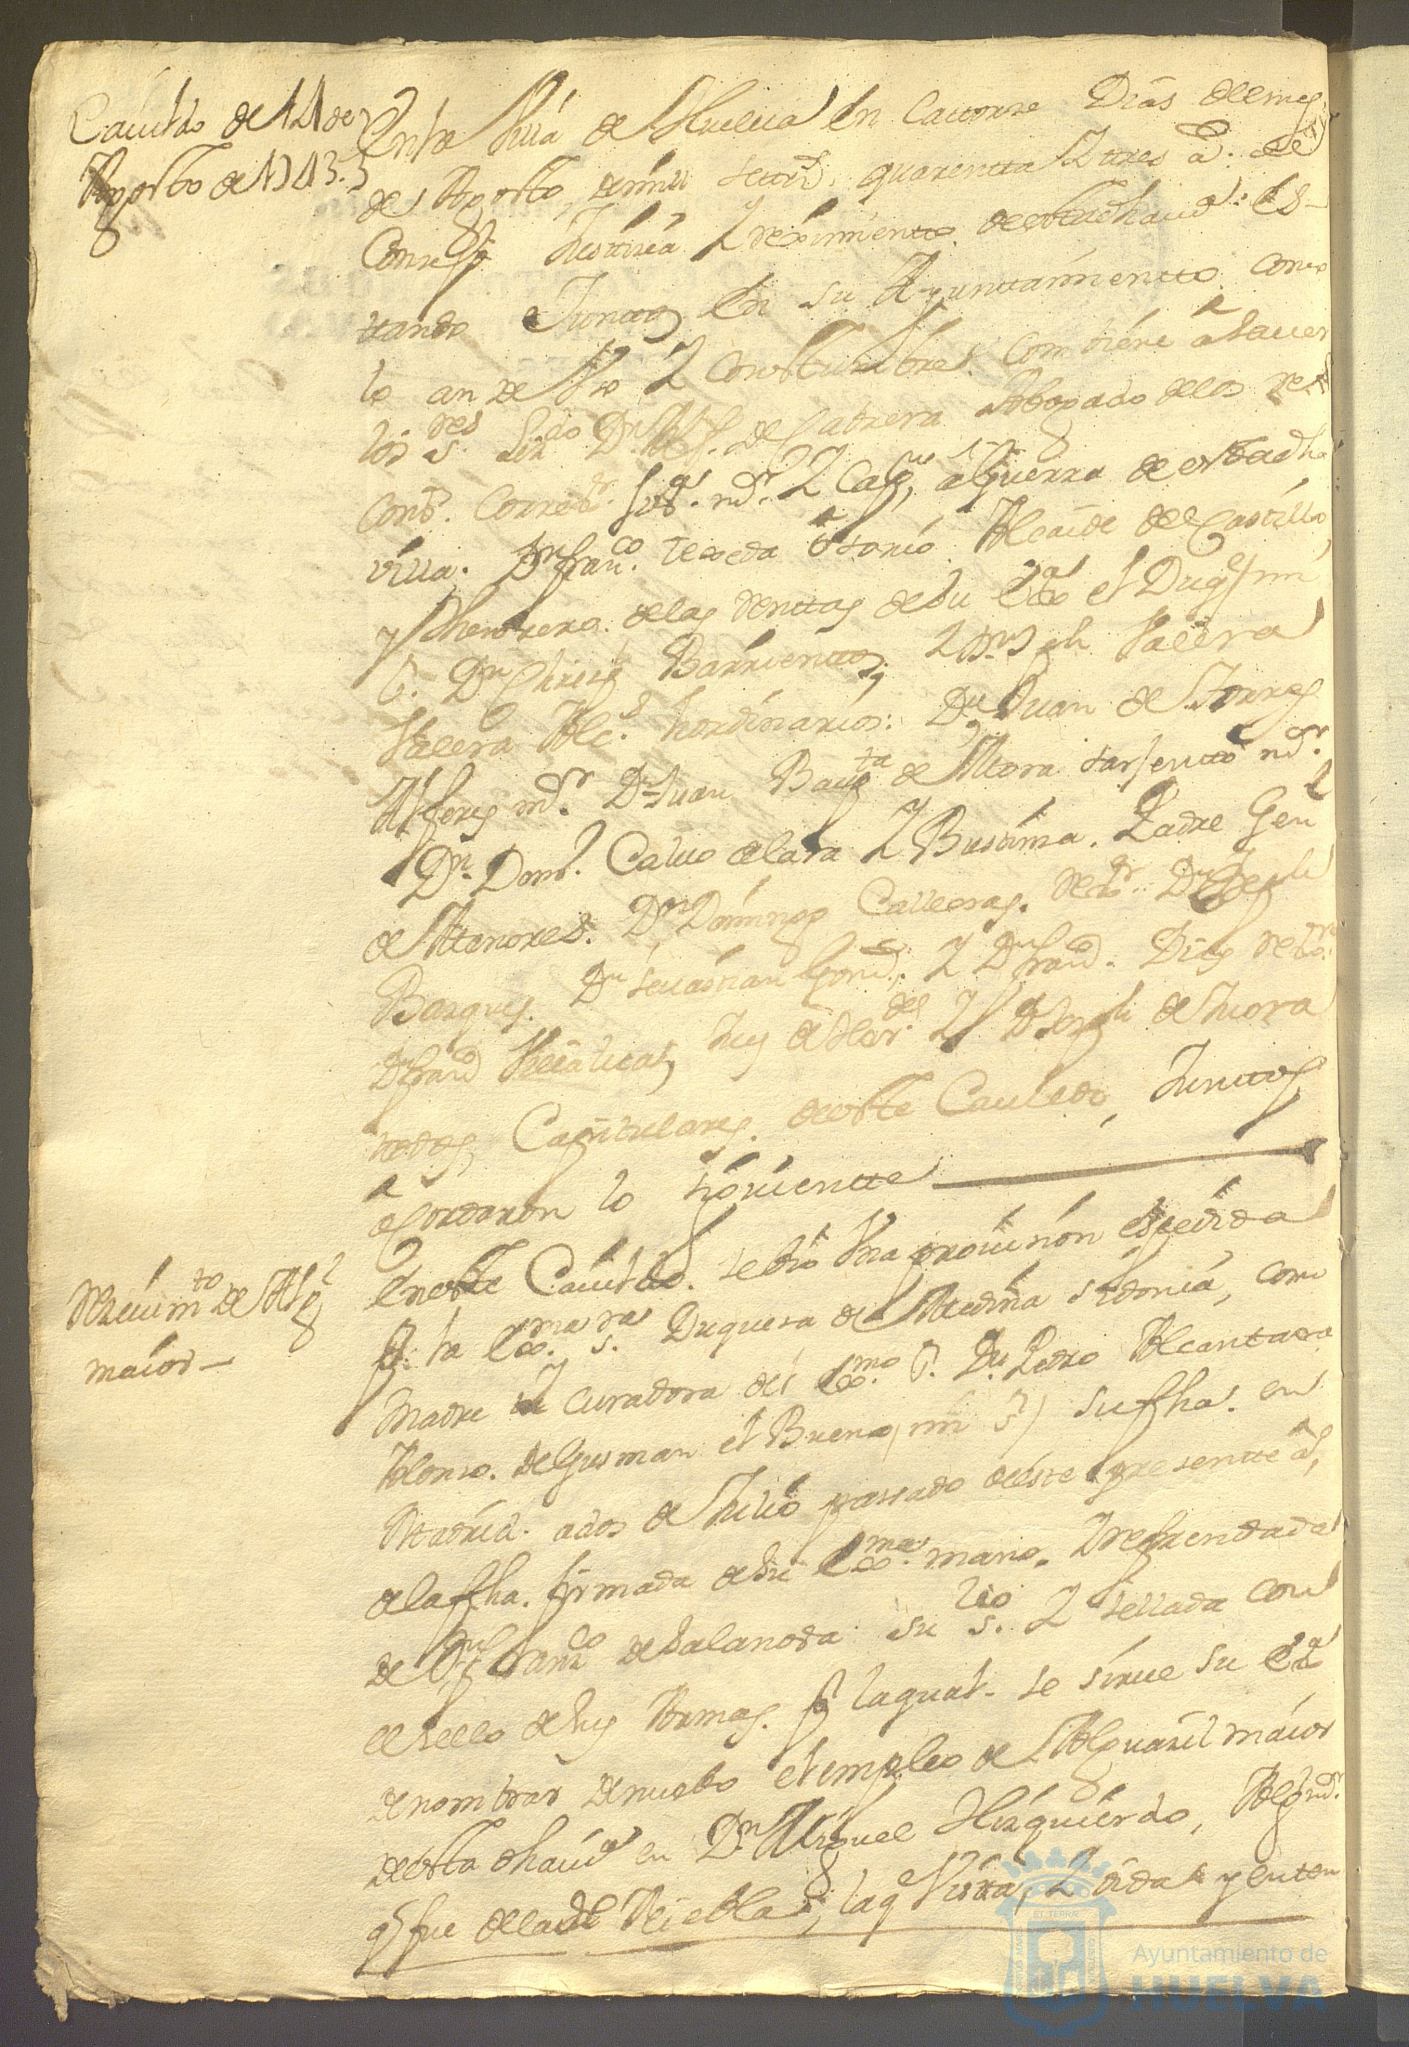 Cauildo de 14 de
Agosto de 1743.
En la Villa de Huelua en Catorze Dias del mes
de Agosto, de mill settz.s quarentta y tres a.s el
Conzejo Justizia y reximientto de esta dha uilla es-
tando Junttos en su Ayunttamientto como
lo an de Vso y Costumbre. Combiene a sauer
los s.res Liz.do D.n de Cabrera Abogado de los R.s
Cons.s Correg.r Jus.a m.r y Cap.n a Guerra de esta dha
villa. D.n fran.co texeda osorio Alcaide del Castillo,
y thesorero de las Renttas de su Ex.a el Duq.e mi
s.r D.n Barrienttos, y D.n Jph Valera
Valera Alc.s hordinarios. D.n Juan de Torres
Alferes m.r D.n Juan Bau.ta de Mora sarjentto m.r
D.n Dom.o Caluo de lara y Bustima. Padre Gen.l
de Menores. D.n Domingo Calleeras. rex.r D.n Joseph
Barques. D.n seuastian Gonz.s y D.n fran.co Dias rex.res
D.n fran.co y D.n Joseph de Mora
todos, Capitulares de este Cauildo, Junttos
acordaron lo siguientte
Reziuim.to de Alg.l
maior
En este Cauildo. se bio Vna prouision espedida
p.r la Ex.ma s.ra Duquesa de Medina sidonia, como
Madre y curadora del Ex.mo s.r D.n Pedro Alcantara
Alonso. de Gusman el Bueno, mi s.r, su fha. en
Madrid. a dos de Julio passado de este presentte a.
de la fha. firmada de su Ex.ma mano. y refrendada
de D.n fran.co de Salanoba su s.rio y sellada con
el sello de sus Armas. p.r la qual. se sirue su Ex.a
de nombrar de nuebo el empleo de Alguazil maior
de esta dha uilla en D.n Miguel Hizquierdo, Alg.l m.r
q.e fue de la de Niebla, la q.e Vista, y oida y enten
Ayuntamiento de
HUELVA